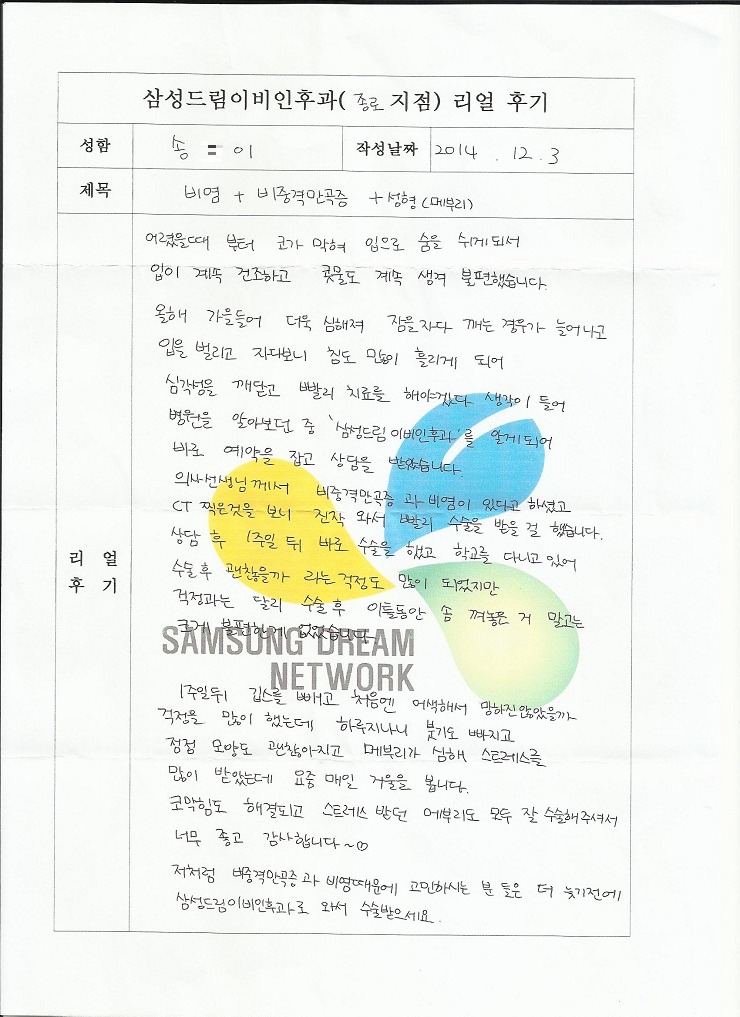 삼성드림이비인후과( 종로 지점) 리얼 후기
성함 송 = 이 작성날짜 2014 . 12. 3
제목 비염 + 비중격만곡증 +성형(메부리)
리 얼
후 기
어렸을때 부터 코가 막혀 입으로 숨을 쉬게되서
입이 계속 건조하고 콧물도 계속 생겨 불편했습니다.
올해 가을들어 더욱 심해져 잠을자다 깨는 경우가 늘어나고
입을 벌리고 자다보니 침도 많이 흘리게 되어
심각성을 깨닫고 빨리 치료를 해야겠다 생각이 들어
병원을 알아보던 중 '삼성드림 이비인후과'를 알게되어
바로 예약을 잡고 상담을 받았습니다.
의사선생님께서 비중격만곡증 과 비염이 있다고 하셨고
CT 찍은것을 보니 진작 와서 빨리 수술을 받을 걸 했습니다.
상담 후 1주일 뒤 바로 수술을 했고 학교를 다니고 있어
수술후 괜찮을까 라는걱정도 많이 되었지만
걱정과는 달리 수술 후 이틀동안 솜 껴놓은 거 말고는
크게 불편한게 없었습니다.
SAMSUNG DREAM
NETWORK
1주일뒤 깁스를 빼고 처음엔 어색해서 망하진않았을까
걱정을 많이 했는데 하루지나니 붓기도 빠지고
점점 모양도 괜찮아지고 메부리가 심해 스트레스를
많이 받았는데 요즘 매일 거울을 봅니다.
코막힘도 해결되고 스트레스 받던 메부리도 모두 잘 수술해주셔서
너무 좋고 감사합니다~♡
저처럼 비중격만곡증과 비염때문에 고민하시는 분 들은 더 늦기전에
삼성드림이비인후과로 와서 수술받으세요.